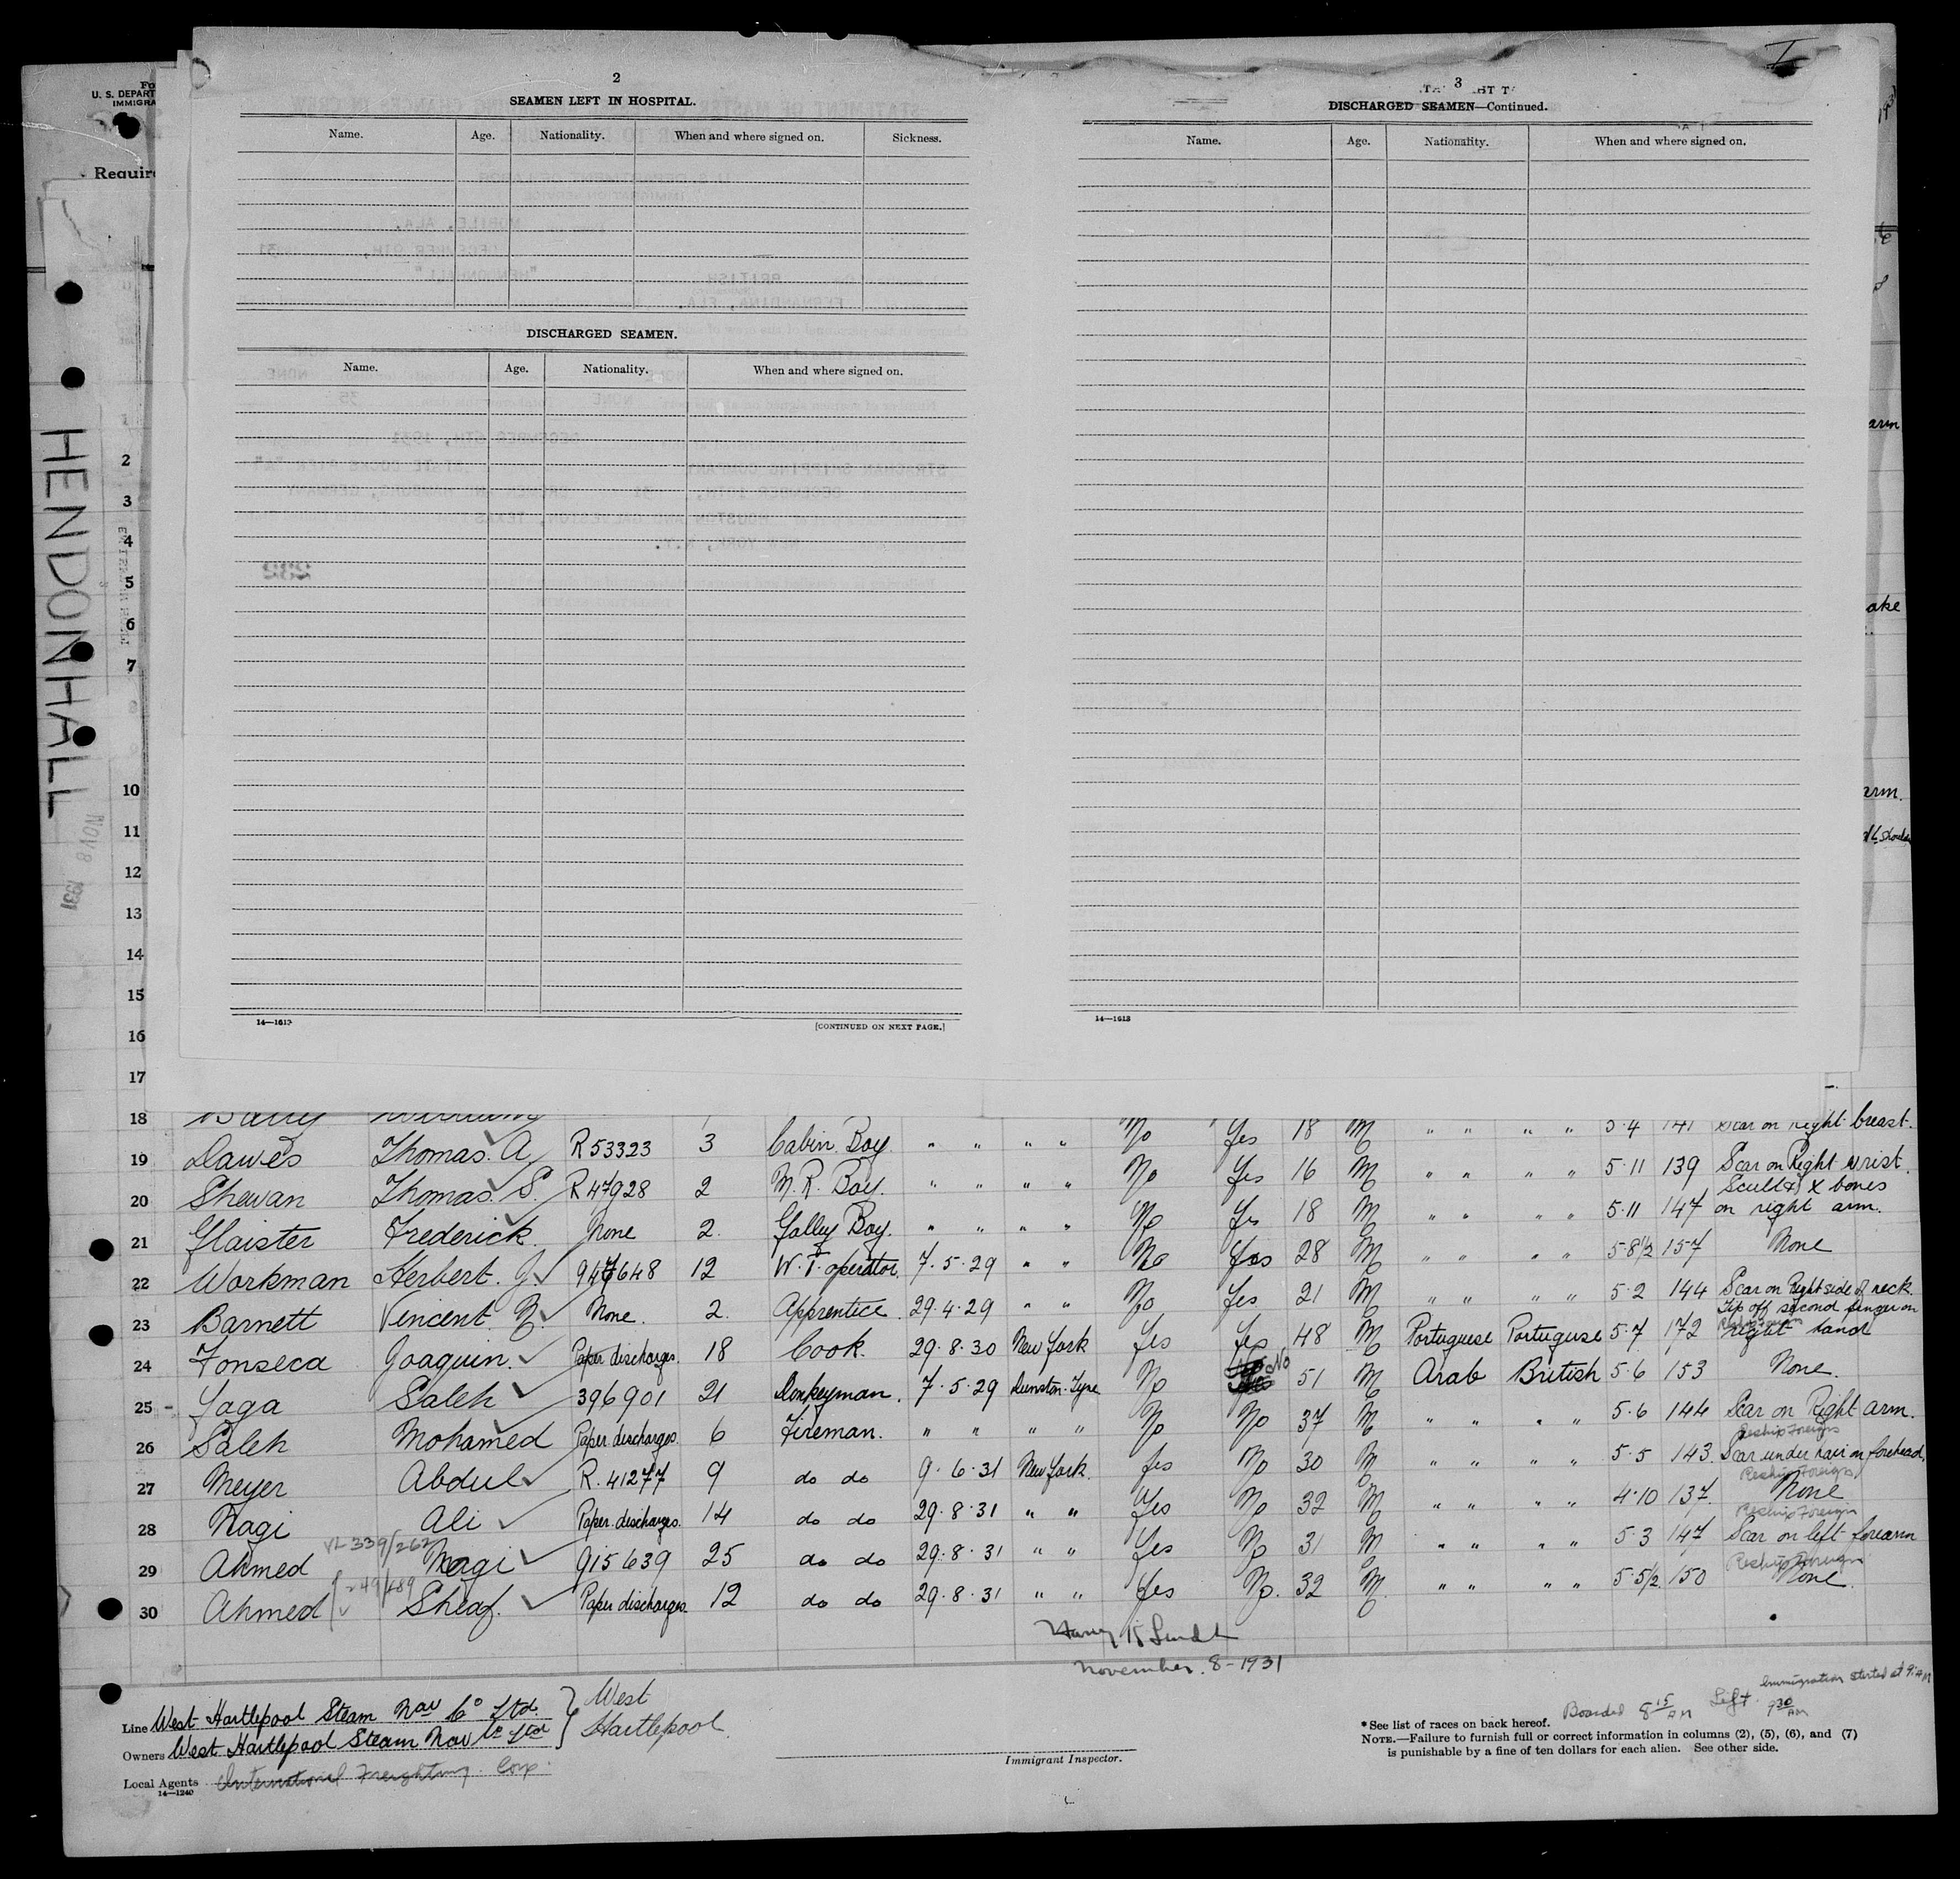 Fo
U. S. DEPART
IMMIGRA
Require
HENDONHALL
NOV 8 1931
2
SEAMEN LEFT IN HOSPITAL.
Name. Age. Nationality. When and where signed on. Sickness.
DISCHARGED SEAMEN.
Name. Age. Nationality. When and where signed on.
14—1613 [CONTINUED ON NEXT PAGE.]
I
3
DISCHARGED SEAMEN—Continued.
Name. Age. Nationality. When and where signed on.
14—1613
arm
ake
arm.
1
2
3
4
5
6
7
8
10
11
12
13
14
15
16
17
18 18 M " " " " 5·4 141 Scar on right breast.
19 Dawes Thomas. A R53323 3 Cabin Boy " " " " No Yes 16 M " " " " 5·11 139 Scar on Right wrist.
20 Shewan Thomas. S. R47928 2 M. R. Boy. " " " " No Yes 18 M " " " " 5·11 147 Scull & X bones on right arm.
21 Glaister Frederick. None 2. Galley Boy. " " " " No Yes 28 M " " " " 5·8½ 157 None
22 Workman Herbert. G 947648 12 W. T. operator. 7·5·29 " " No Yes 21 M " " " " 5·2 144 Scar on Right side of neck.
23 Barnett Vincent. N. None. 2. Apprentice. 29·4·29 " " No Yes
24 Fonseca Joaquin. Paper discharges. 18 Cook. 29·8·30 New York Yes Yes 48 M Portuguese Portuguese 5·7 172 Tip off second finger on right hand
25 - Yaga Saleh 396901 21 Donkeyman. 7·5·29 Dunston-Tyne No No 51 M Arab British 5·6 153 None.
26 Saleh Mohamed Paper discharges. 6 Fireman. " " " " No No 37 M " " " " 5·6 144 Scar on Right arm.
27 Meyer Abdul R. 41277 9 do do 9·6·31 New York. Yes No 30 M " " " " 5·5 143. Reship Foreign Scar under hair on forehead.
28 Nagi Ali Paper discharges. 14 do do 29·8·31 " " Yes No 32 M " " " " 4·10 137. Reship Foreign None
29 Ahmed VL 339/262 Nagi 915639 25 do do 29·8·31 " " Yes No 31 M " " " " 5·3 147 Reship Foreign Scar on left forearm
30 Ahmed 249/489 Sheaf. Paper discharges 12 do do 29·8·31 " " Yes No. 32 M. " " " " 5·5½ 150 Reship Foreign None.
November. 8-1931
Line West Hartlepool Steam Nav Co Ltd. } West
Owners West Hartlepool Steam Nav Co Ltd } Hartlepool
Local Agents International Freighting Corp.
14—1240
Immigrant Inspector.
Immigration started at 9 AM
Boarded 8 15 AM Left 9 30 AM
* See list of races on back hereof.
NOTE.—Failure to furnish full or correct information in columns (2), (5), (6), and (7)
is punishable by a fine of ten dollars for each alien. See other side.